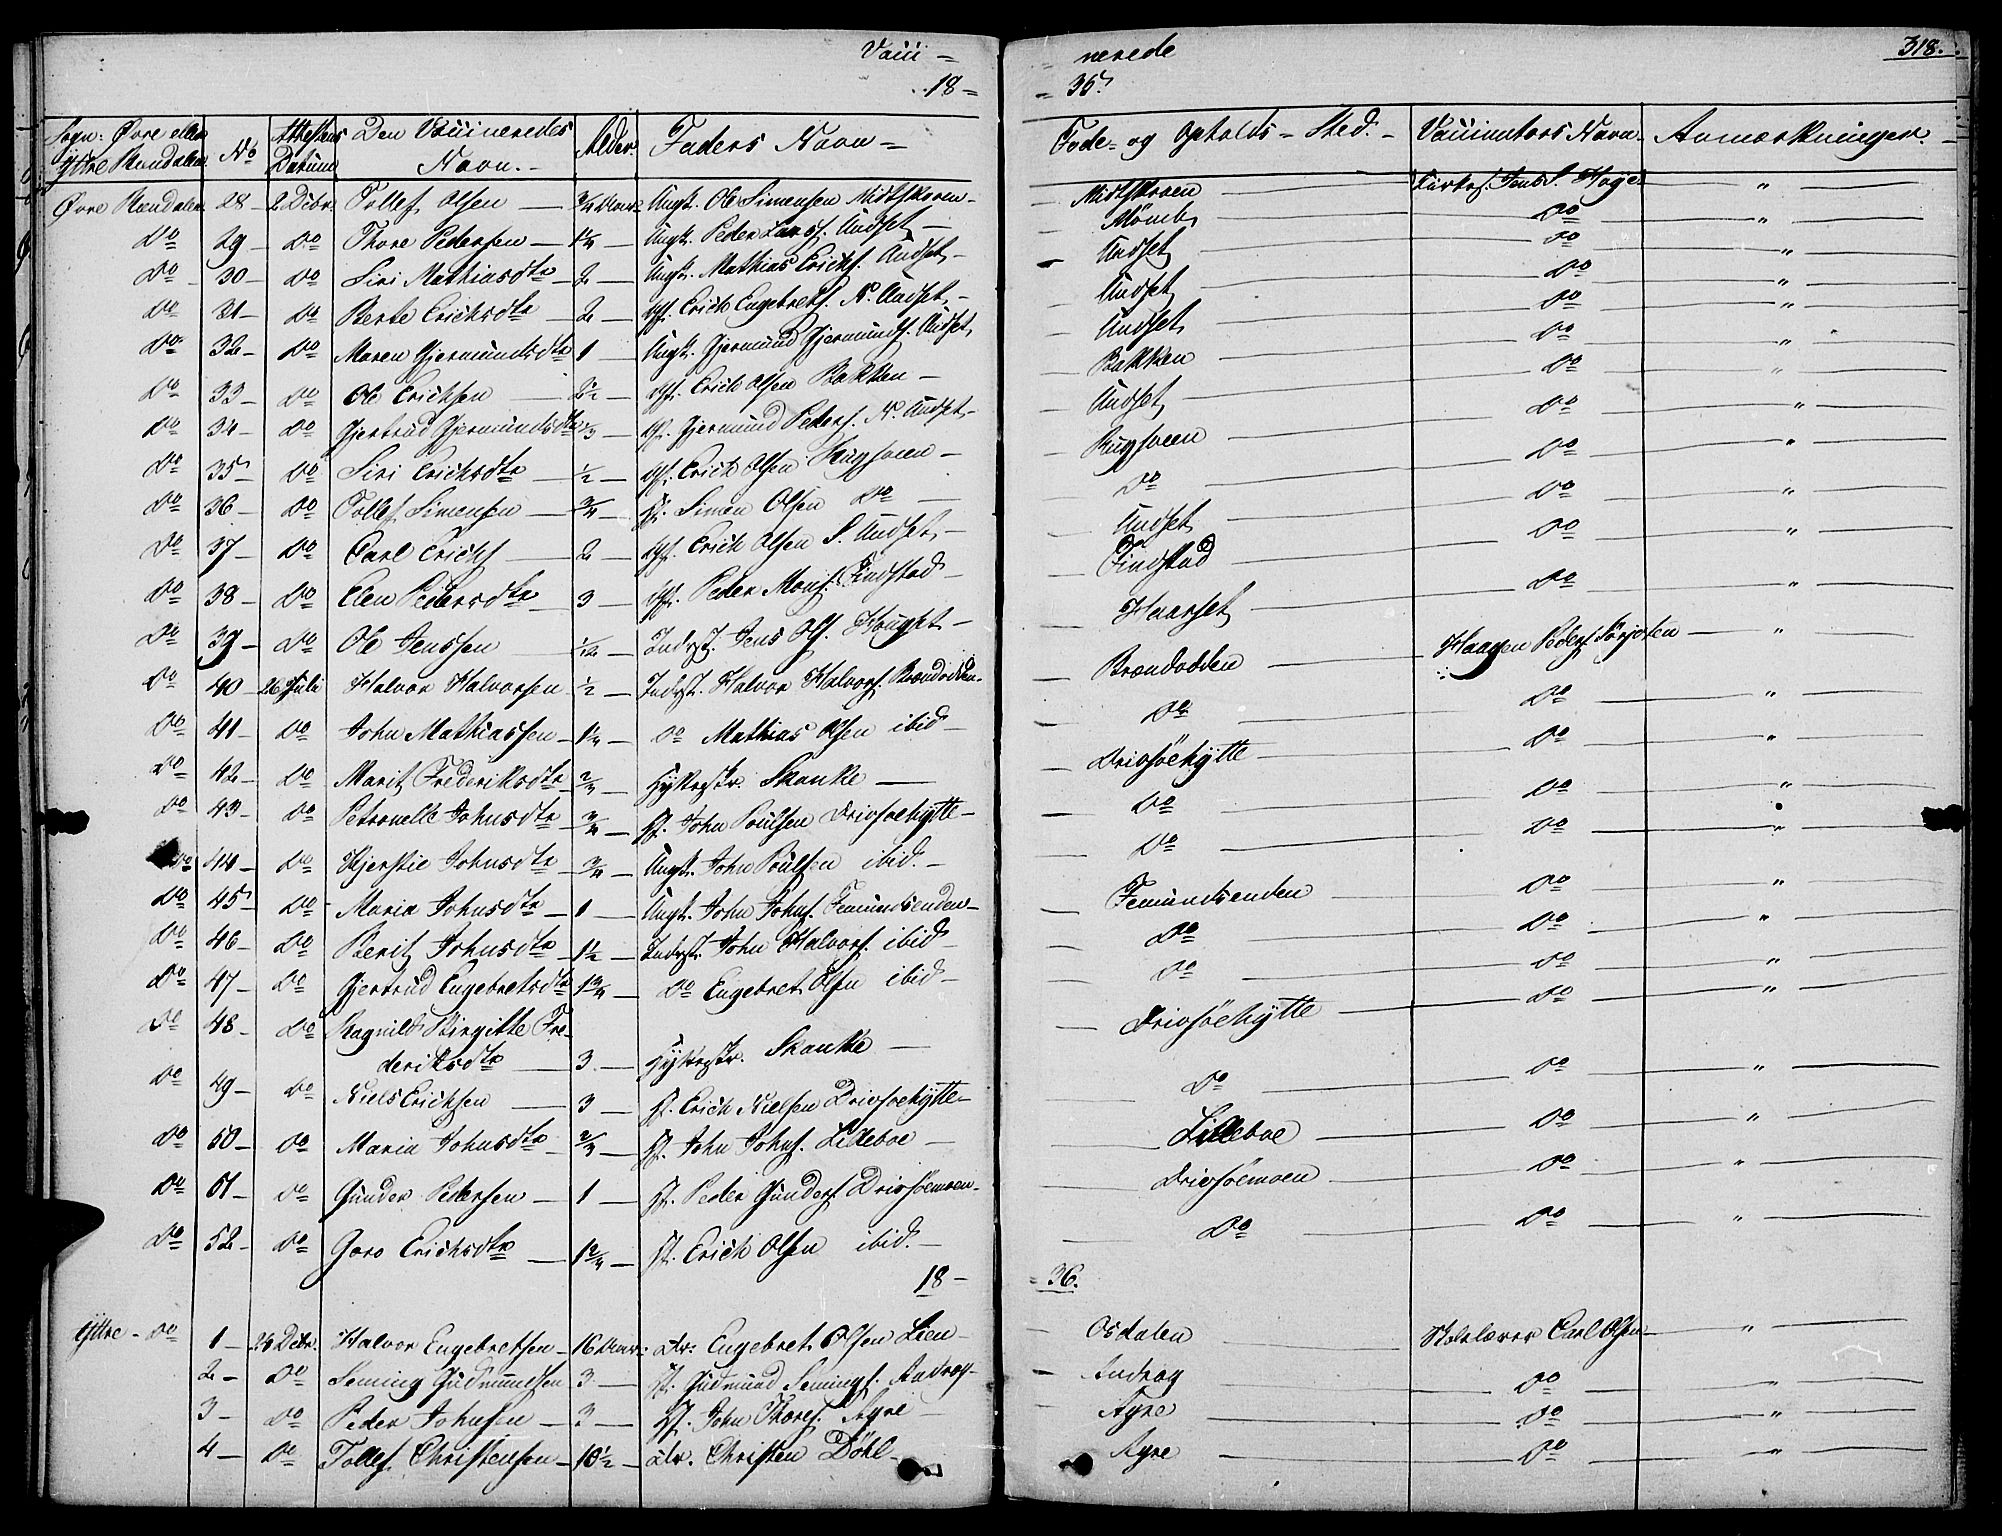 Vacci- nerede 318.
18- 35.
Sogn: Øvre eller Yttre Rendalen No Attestens Datum Den Vaccineredes Navn.- Alder. Faders Navn- Føde- og Opholds-Sted.- Vaccinators Navn- Anmærkninger.-
Øvre Rendalen 28- 2 Decbr. Tollef Olsen- 3/4 Ole Simensen Midtskoven- Midtskoven Jens S. Hoye "
Do 29- Do Thore Pedersen- 1 1/4- Ungk. Peder Larsf. Andset- Do "
Do 30- Do Siri Mathiasdtr 2- Ungk. Mathias Erichs. Andset- Andset Do "
Do 31- Do Berte Erichsdtr 2- Erich Engebrets. N. Andset- Andset Do "
Do 32- Do Maren Gjermundsdtr 1- Ungk. Gjermund Gjermundf. Andset Andset Do "
Do 33- Do Ole Erichsen- Erich Olsen Bakken- Bakken Do "
Do 34- Do Gjertrud Gjermundsdtr Gjermund Peders. N. Andset- Andset Do "
Do 35- Do Siri Erichsdtr- 1/2- Erich Olsen- Do "
Do 36- Do Tollef Simensen- 3/4- Simen Olsen Do- Do Do "
Do 37- Do Carl Erichs- 2- Erich Olsen S. Andset- Andset Do "
Do 38- Do Elen Pedersdtr 3- Peder Monsf. Findstad- Findstad Do "
Do 39- Do Ole Jenssen- Inderst. Jens Olf.- Haarset Do "
Do 40- 26 Juli Halvor Halvorsen 1/2- Inderst. Halvor Halvorf. Brændodden- Brændodden Haagen Peders. "
Do 41- Do John Mathiassen- 1 1/4- Do Mathias Olsen ibid- Do Do "
Do 42- Do Marit Frederiksdtr- Skanke- Driosöehytte Do "
Do 43- Do Petronelle Johnsdtr- 3/4- John Poulsen Driosöehytte- Do Do "
Do 44- Do Kjerstie Johnsdtr- 3/4- Ungk. John Poulsen ibid.- Do Do "
Do 45- Do Maria Johnsdtr- 1- Ungk. John Johnf. Femundsenden- Femundsenden Do "
Do 46- Do Berit Johnsdtr- 1 1/2- Inderst. John Halvorf. ibid- Do Do "
Do 47- Do Gjertrud Engebretsdtr 1 3/4- Do Engebret Olsen ibid- Do Do "
Do 48- Do Ragnild Birgitte Fre-
deriksdtr- 3- Skanke- Driosöehytte Do "
Do 49- Do Niels Erichsen- 3- Erich Nielsen Driosöehytte- Do Do "
Do 50- Do Maria Johnsdtr- John Johnf. Lilleboe- Lilleboe Do "
Do 51- Do Gunder Pedersen- 1- Peder Gunders Driosöemoen- Driosöemoen Do "
Do 52- Do Goro Erichsdtr- Erich Olsen ibid.- Do Do "
18- 36.
Yttre- Do 1- Halvor Engebretsen- 16 Engebret Olsen Lien- Osdalen Skolelærer Carl Olsen- "
2- Do Seming Gudmundsen 3- Gudmund Semingf. Andraa- Do "
3- Do Peder Johnsen- 3- John Thoref. Agre Agre Do "
4- Do Tollef Christensen- 10 1/2- Christen Döhl- Agre Do "